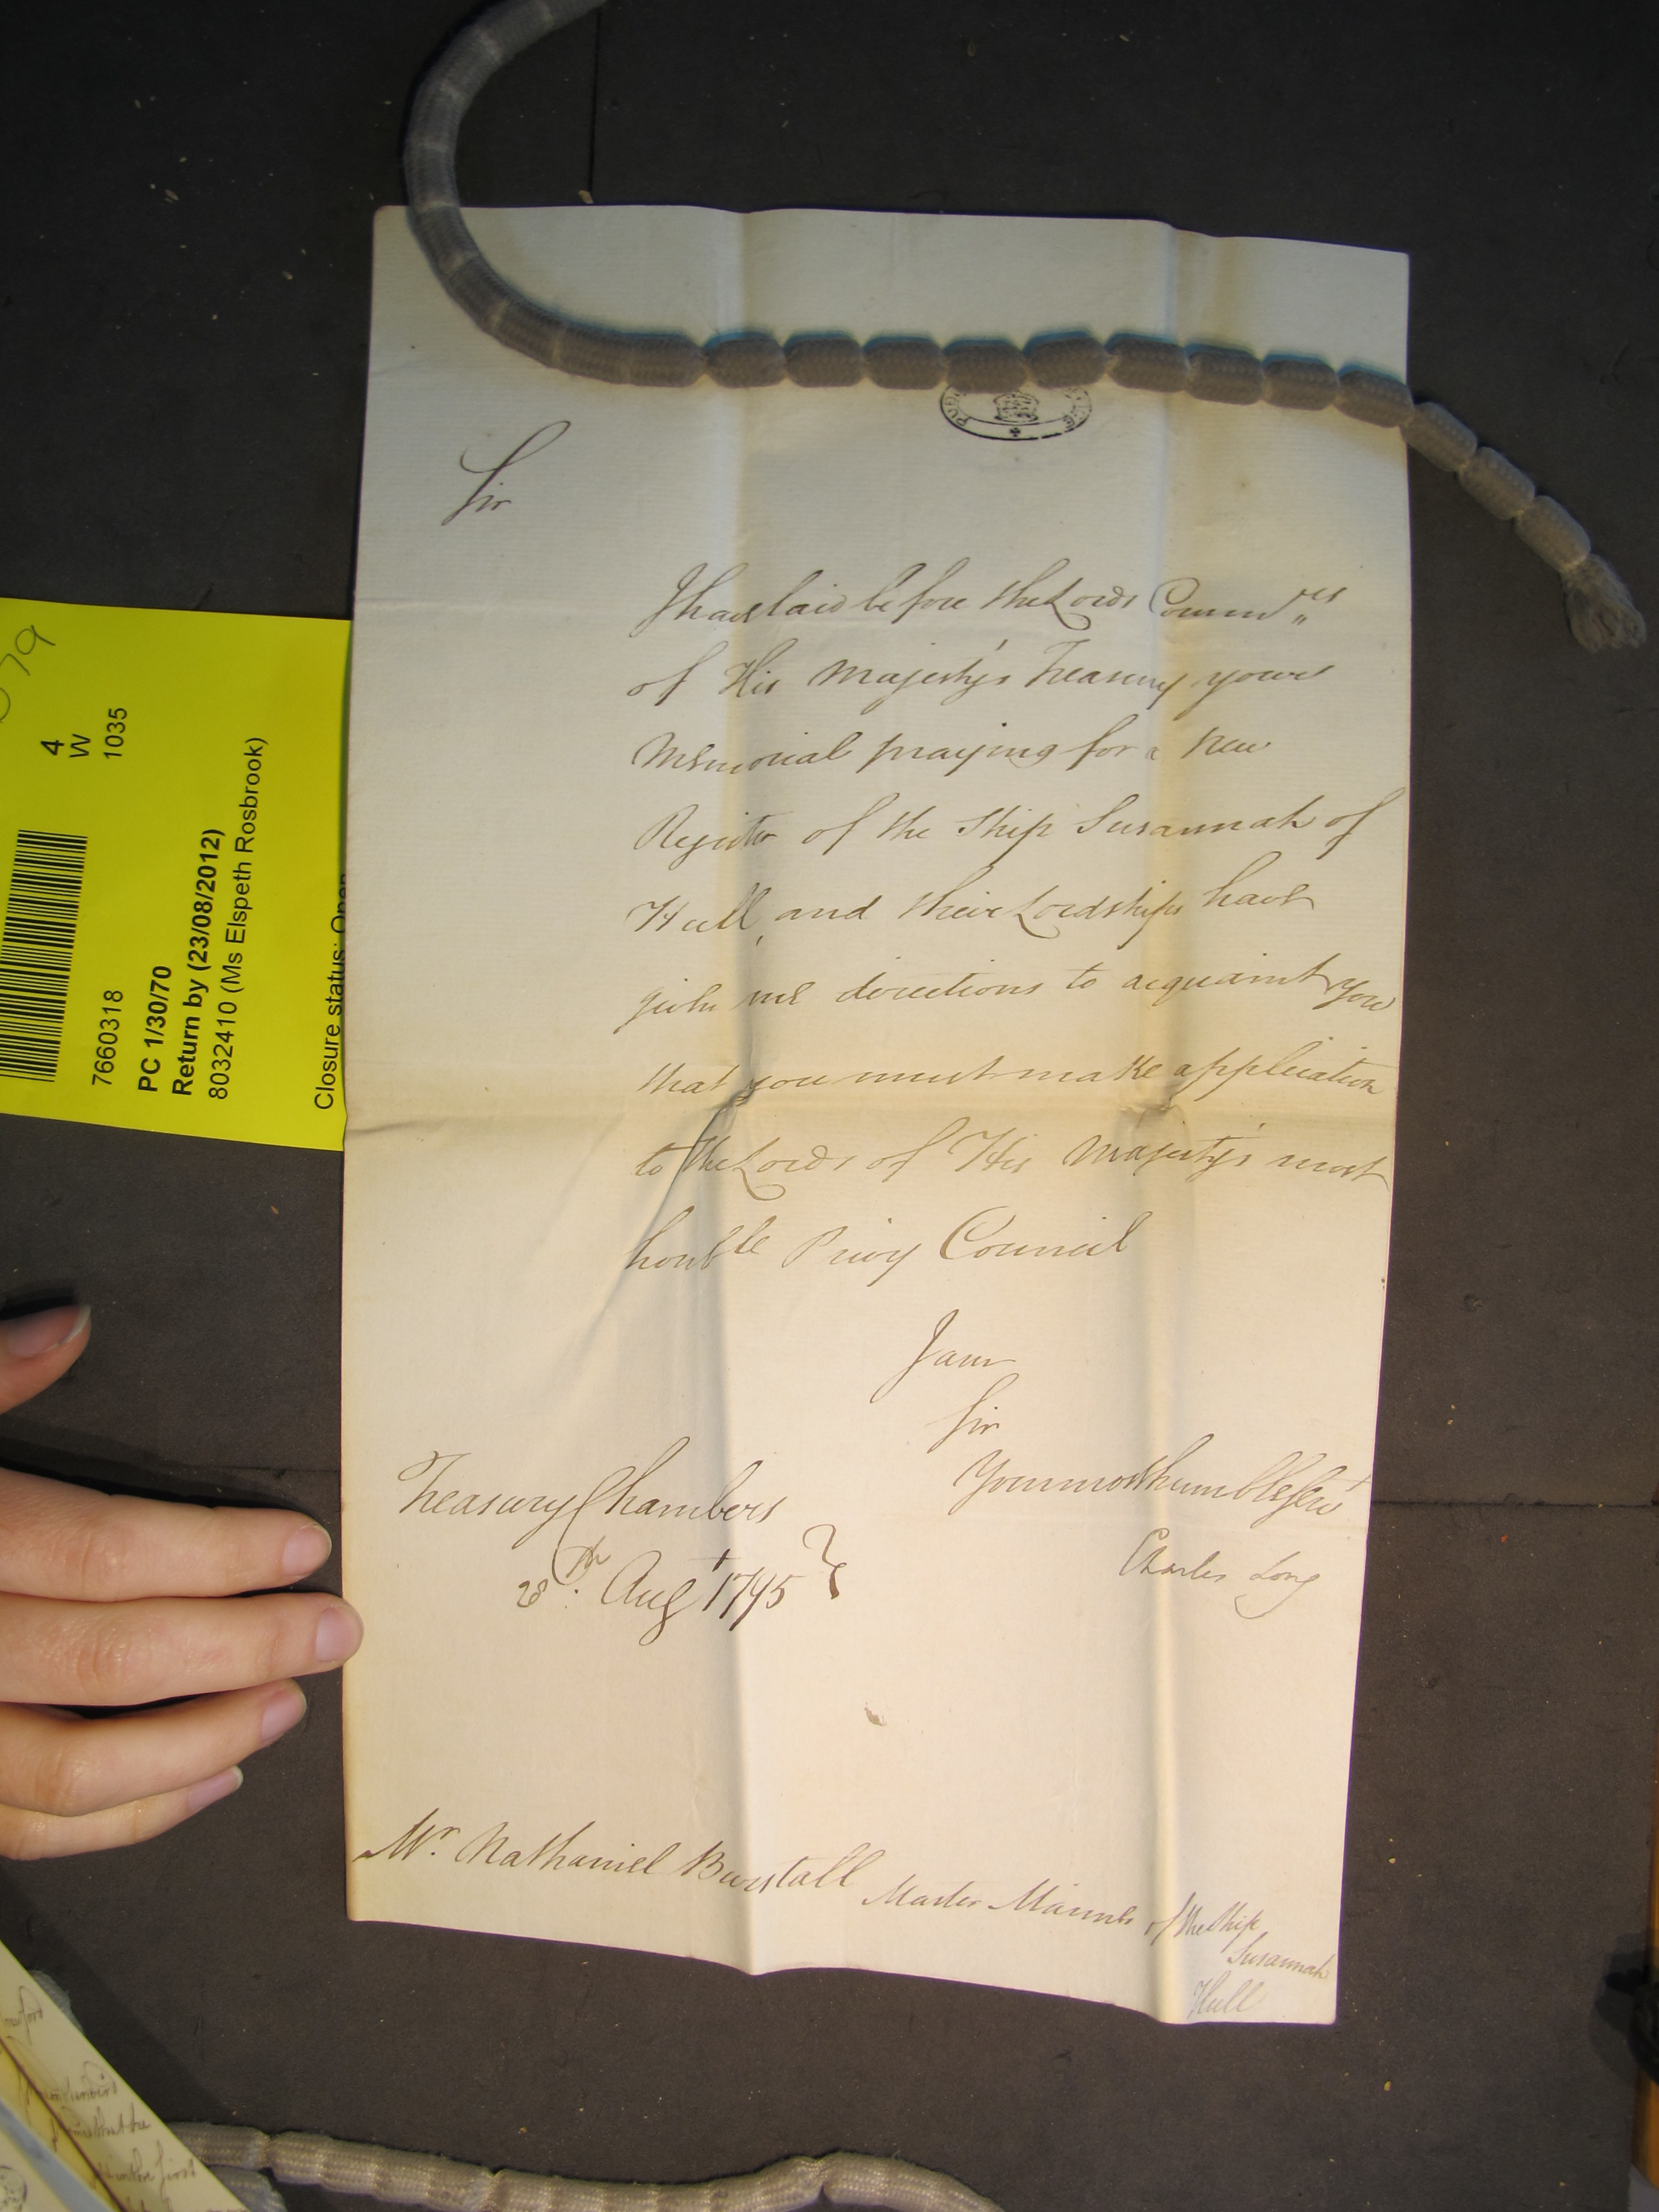 Sir
I have laid before the Lords Commrs
of His Majesty's Treasury your
Memorial praying for a New
Register of the Ship Susannah of
Hull, and their Lordships have
given me directions to acquaint you
that you must make application
to the Lords of His Majesty's most
honble Privy Council
I am
Sir
Your most humble Servt
Charles Long
Treasury Chambers
28th. Augt 1795
Mr. Nathaniel Burstall Master Mariner of the Ship
Susannah
Hull
79
4
W
1035
7660318
PC 1/30/70
Return by (23/08/2012)
8032410 (Ms Elspeth Rosbrook)
Closure status: Open